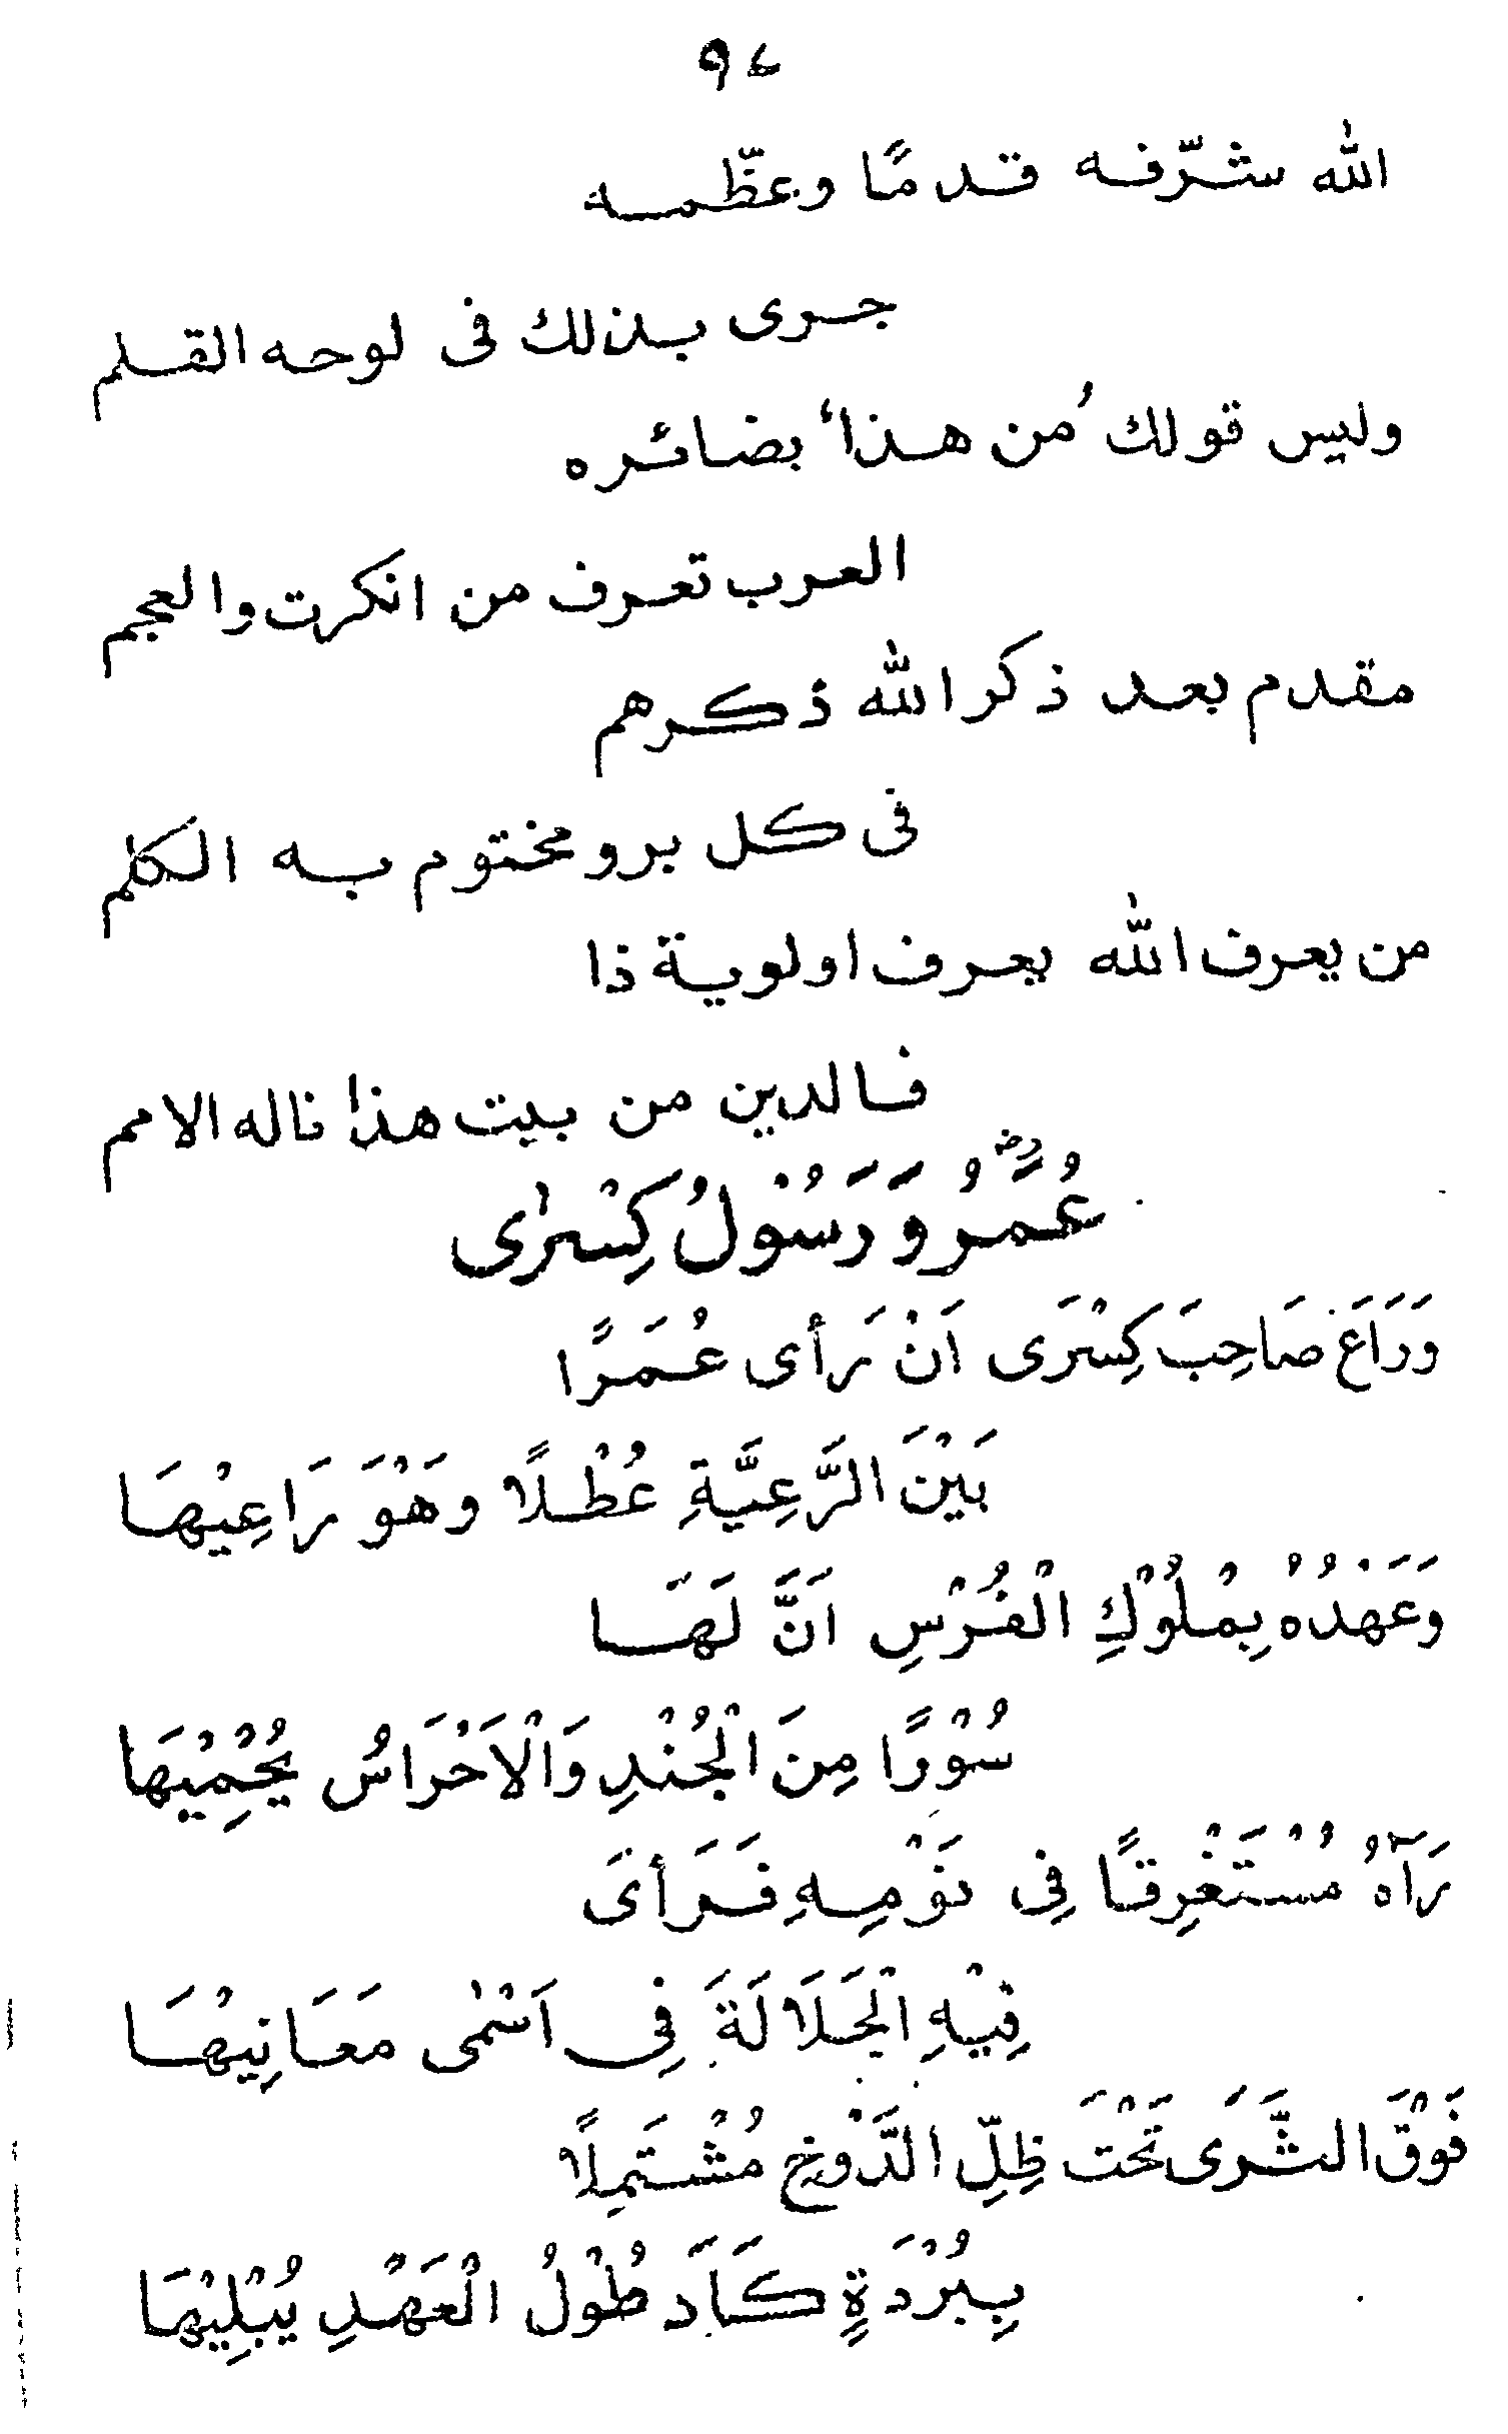 ۹۷
الله شرّفه قدمًا وعظّمه
جرى بذلك فى لوحه القلم
وليس قولك ’من هذا‘ بضائره
العرب تعرف من انكرت والعجم
مقدم بعد ذكر الله ذكرهم
فى كل برو مختوم به الكلم
من يعرف الله يعرف اولوية ذا
فالدين من بيت هذا ناله الامم
عُمَرُ ؓ وَ رَسُوْلُ كِسْرٰى
وَرَاعَ صَاحِبَ كِسْرَى اَنْ رَأى عُمَرًا
بَيْنَ الرَّعِيَّةِ عُطْلًا وَهْوَ رَاعِيْهَا
وَعَهْدُهُ بِمْلُوْكِ الْفُرْسِ اَنَّ لَهَا
سُوْرًا مِنَ الْجُنْدِ وَالْاَحْرَاسُ يُحْمِيْهَا
رَآهُ مُسْتَغْرِقًا فِى نَوْمِهِ فَرَأىَ
فِيْهِ الْجَلَالَةَ فِى اَسْمٰى مَعَانِيْهَا
فَوْقَ الثَّرَى تَحْتَ ظِلِّ الدَّوْخِ مُشْتَمِلًا
بِبُرْدَةٍ كَادَ طُوْلُ الْعَهْدِ يُبْلِيْهَا